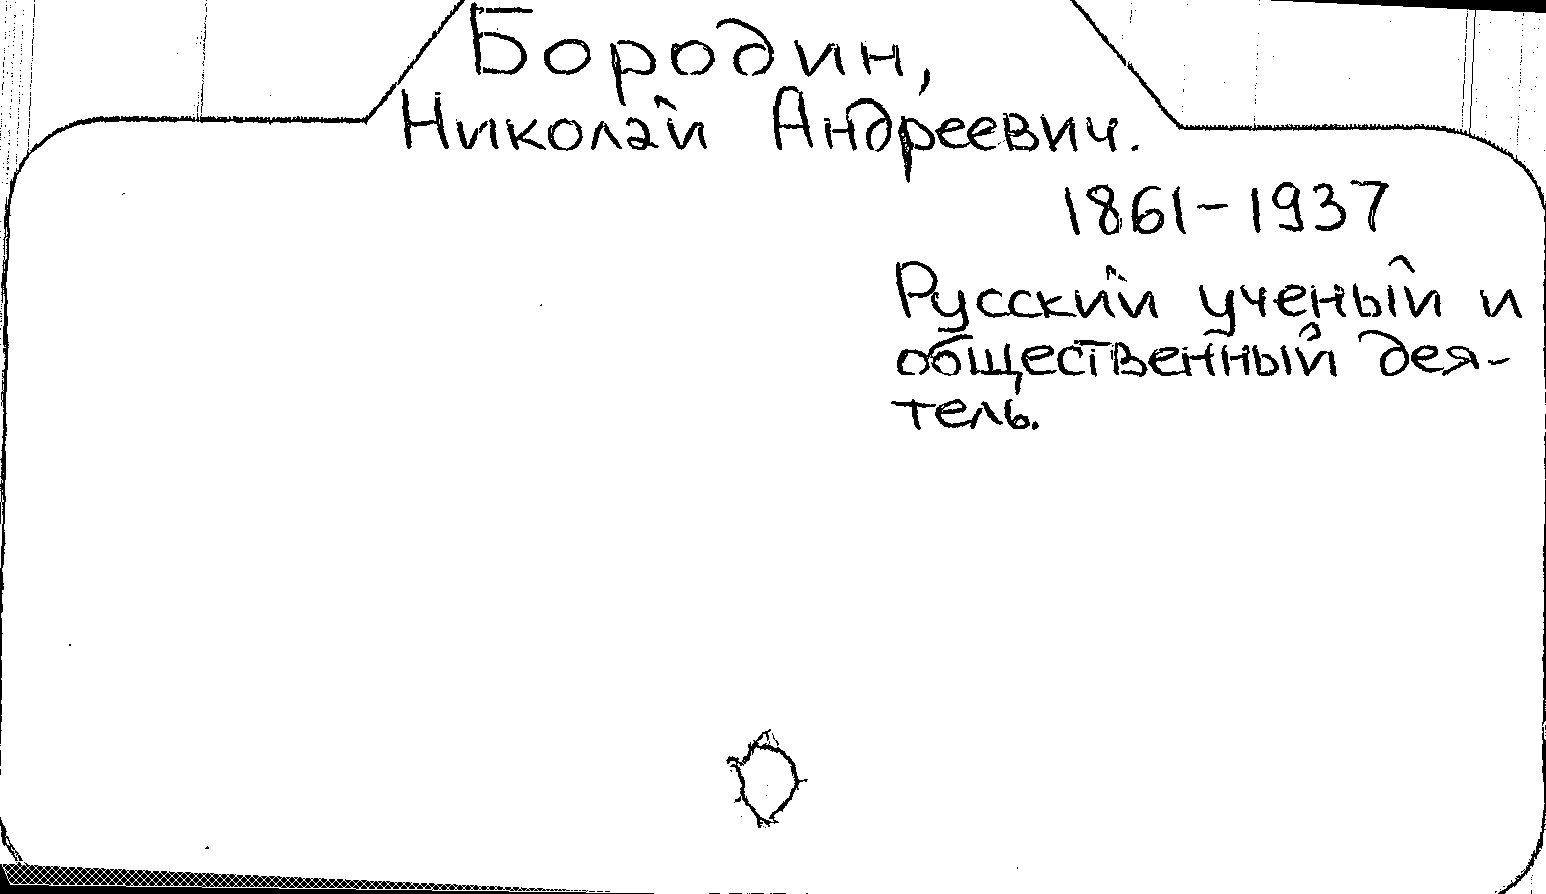 Бородин,
Николай Андреевич.
1861-1937
Русский ученый и
общественный дея-
тель.